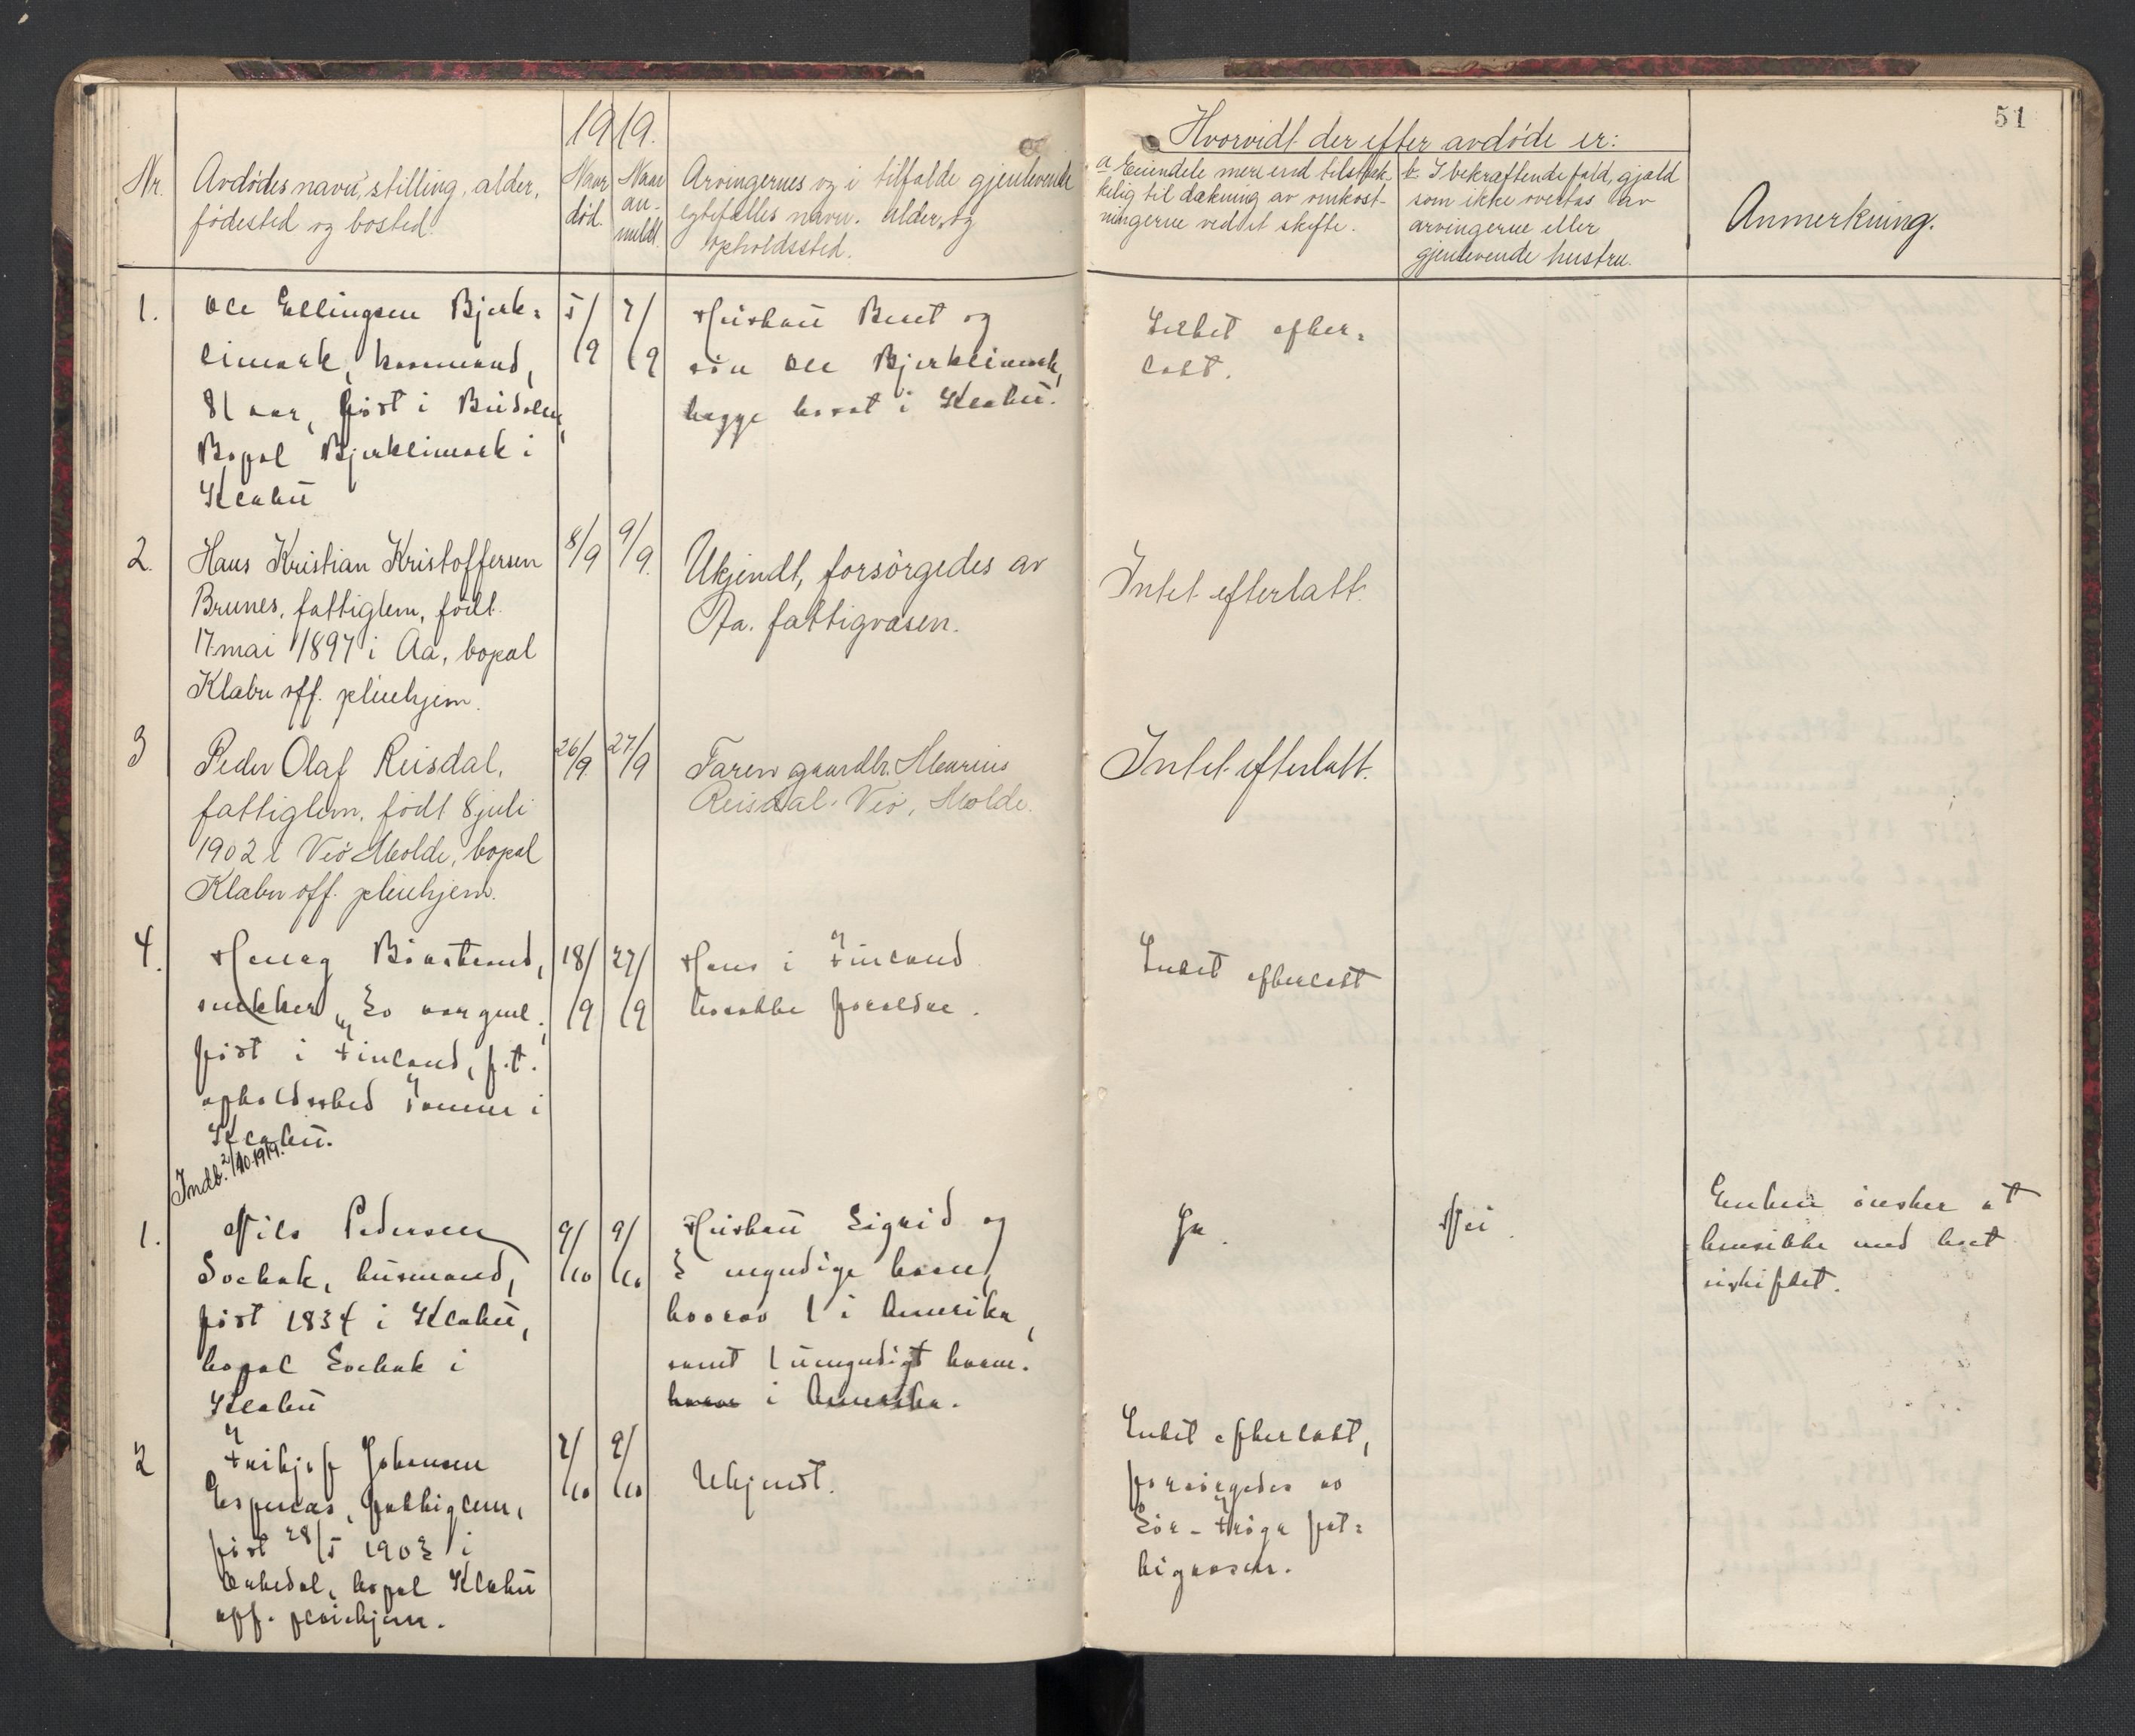 51
1919.
Hvorvidt der efter avdøde er:
Nr.
Avdødes navn, stilling, alder,
fødested og bosted.
Naar
død.
Naar
an-
meldt.
Arvingernes og i tilfælde gjenlevende
egtefælles navn, alder og
opholdssted.
a. Eiendele mere end tilstræk-
kelig til dækning av omkost-
ningerne ved det skifte.
b. I bekræftende fald, gjæld
som ikke overtas av
arvingerne eller
gjenlevende hustru.
Anmerkning.
1.
Ole Ellingsen Bjerk-
limark, kaarmand,
81 aar, født i Budalen,
Bopæl Bjerklimark i
Klæbu
5/
/9
7/
/9
Huskon Beret og
søn Ole Bjerklimark,
begge bosat i Klæbu.
Intet efter-
latt.
2.
Hans Kristian Kristoffersen
Brunes, fattiglem, født
17 mai 1897 i Aa, bopæl
Klæbu off. pleiehjem.
8/9
9/9.
Ukjendt, forsørgedes av
Aa. fattigvæsen.
Intet efterlatt.
3
Peder Olaf Reisdal,
fattiglem, født 8 juli
1902 i Veø Molde, bopæl
Klæbu off. pleiehjem.
26/9.
27/9
Faren gaardbr. Marius
Reisdal. Veø, Molde.
Intet efterlatt.
4.
snekker, 30 aar gml.
født i Finland, p.t.
opholdssted i
Klæbu.
18/
/9
27/
/9
Hans i Finland
bosatte forældre.
Intet efterlatt
Indb. 2/10 1919.
1.
Nils Pedersen
Sochak, husmand,
født 1834 i Klæbu,
bopæl Sochak i
Klæbu
9/
/10
9/
/10
Huskon Sigrid og
3 myndige barn,
hvorav 1 i Amerika,
samt 1 umyndigt barn.
i Amerika.
Ja.
Nei.
Enken ønsker at
hensidde med boet
uskiftet.
2
Fritjof Johansen
Espenes, fattiglem,
født 28/5 1903 i
bopæl Klæbu
off. pleiehjem.
7/
/10
9/
/10
Ukjendt.
Intet efterlatt,
forsørgedes av
Sør-Frøya fat-
tigvæsen.